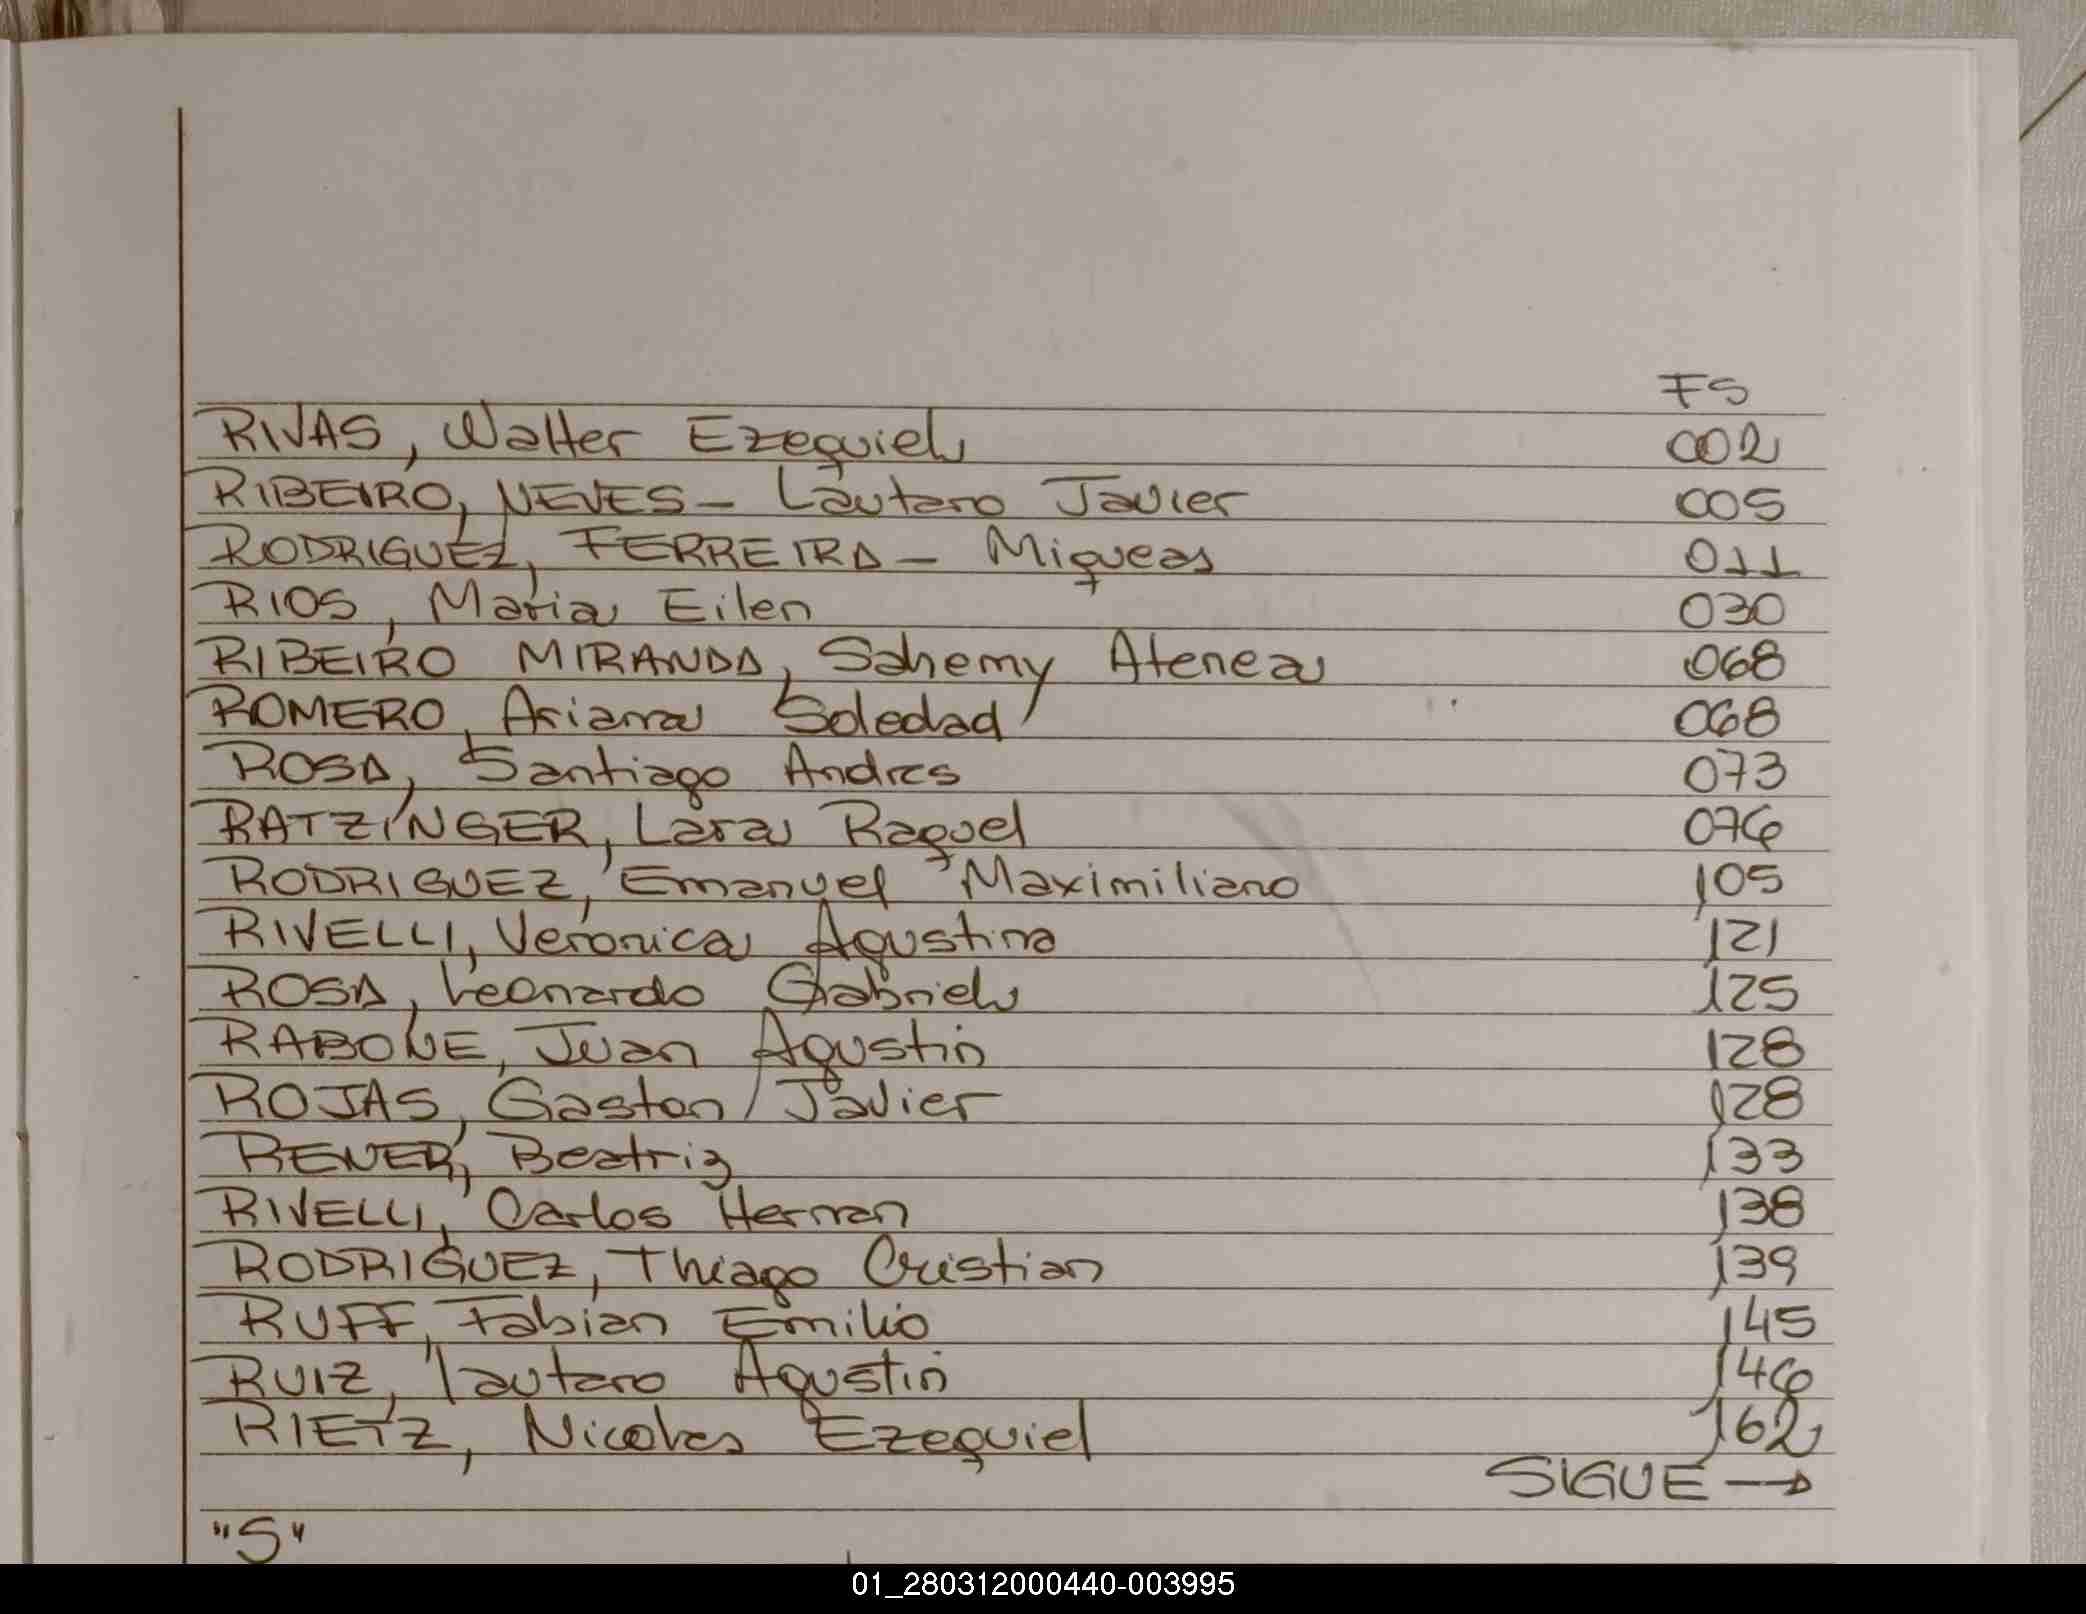 FS
RIVAS, Walter Ezequiel 002
RIBEIRO, NEVES - Lautaro Javier 005
RODRIGUEZ, FERREIRA - Miqueas 011
RIOS, Maria Eilen 030
RIBEIRO MIRANDA, Sahemy Atenea 068
ROMERO, Ariana Soledad 068
ROSA, Santiago Andres 073
RATZINGER, Lara Raquel 076
RODRIGUEZ, Emanuel Maximiliano 105
RIVELLI, Veronica Agustina 121
ROSA, Leonardo Gabriel 125
RABONE, Juan Agustin 128
ROJAS, Gaston Javier 128
RENER, Beatriz 133
RIVELLI, Carlos Hernan 138
RODRIGUEZ, Thiago Cristian 139
RUFF, Fabian Emilio 145
RUIZ, Lautaro Agustin 146
RIETZ, Nicolas Ezequiel 162
SIGUE →
"S"
01_280312000440-003995